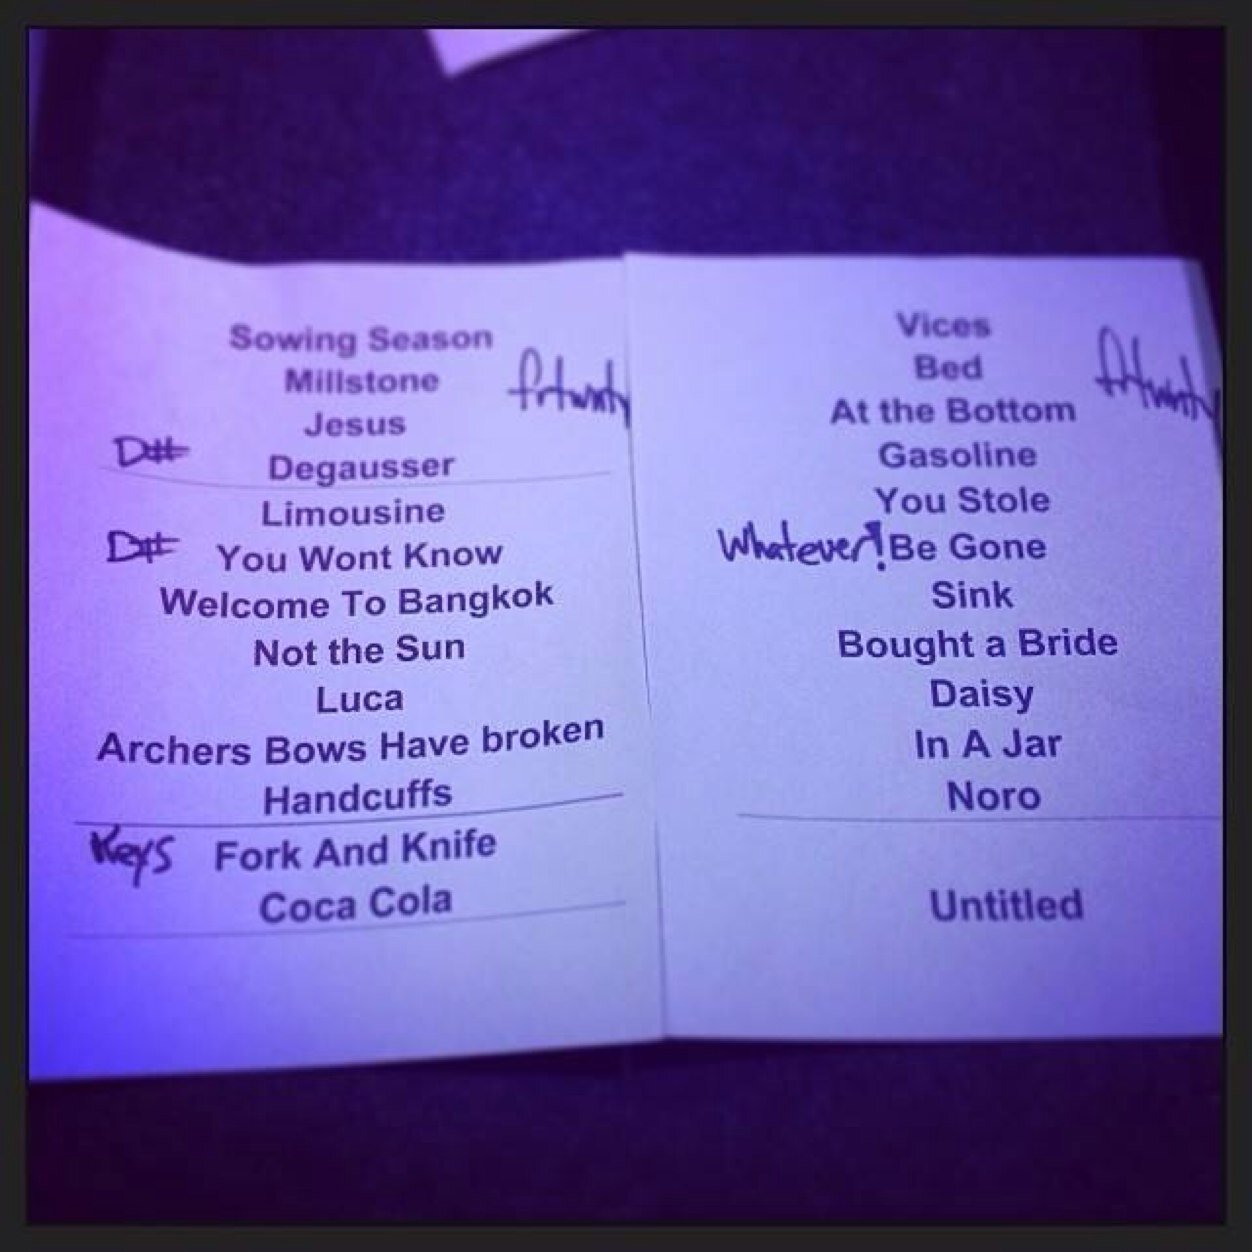 Sowing Season
Millstone
Jesus
D# Degausser
Limousine
D# You Wont Know
Welcome To Bangkok
Not the Sun
Luca
Archers Bows Have broken
Handcuffs
Keys Fork And Knife
Coca Cola
Vices
Bed
At the Bottom
Gasoline
You Stole
Whatever! Be Gone
Sink
Bought a Bride
Daisy
In A Jar
Noro
Untitled